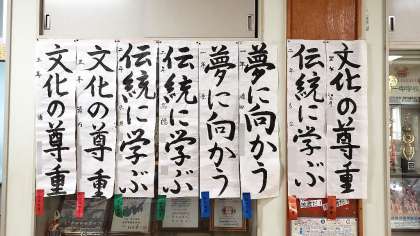 文化の尊重
伝統に学ぶ
夢に向かう
夢に向かう
伝統に学ぶ
伝統に学ぶ
文化の尊重
文化の尊重